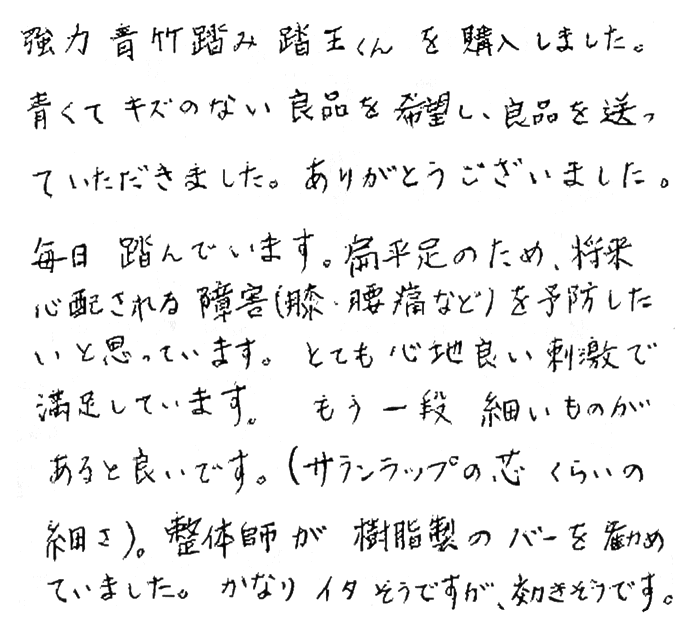 強力青竹踏み 踏王くん を購入しました。
青くてキズのない良品を希望し、良品を送っ
ていただきました。ありがとうございました。
毎日 踏んでいます。扁平足のため、将来
心配される障害(膝・腰痛など)を予防した
いと思っています。とても心地良い刺激で
満足しています。 もう一段 細いものが
あると良いです。(サランラップの芯 くらいの
細さ)。整体師が 樹脂製のバーを勧め
ていました。かなりイタそうですが、効きそうです。